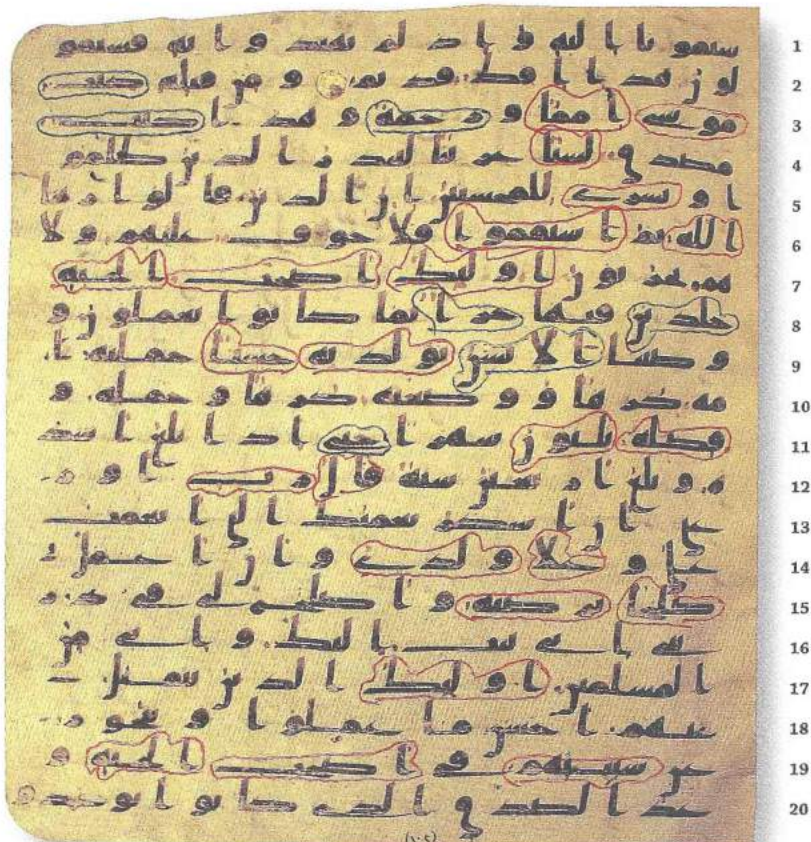 1 سبقونا اليه و اذ لم يهتدوا به فسيقو
2 لون هذا افك قديم و من قبله كتب
3 موسى امما و رحمة و هذا كتب
4 مصدق لسنا عربيا لينذر الذين ظلمو
5 ا و بشرى للمحسنين ان الذين قالوا ربنا
6 الله ثم استقموا فلا خوف عليهم و لا
7 هم يحزنون اوليك اصحب الجنة
8 خلدين فيها جزا بما كانوا يعملون و
9 وصينا الانسن بولديه حسنا حملته ا
10 مه كرها و وضعته كرها و حمله و
11 فصله ثلثون شهرا حتى اذا بلغ اشد
12 ه و بلغ اربعين سنة قال رب او ز
13 عني ان اشكر نعمتك التي انعمت
14 علي و على ولدي و ان اعمل
15 صلحا ترضه و اصلح لي في ذر
16 يتي اني تبت اليك و اني من
17 المسلمين اوليك الذين نتقبل
18 عنهم احسن ما عملوا و نتجو ز
19 عن سييتهم في اصحب الجنة و
20 عد الصدق الذي كانوا يوعدون